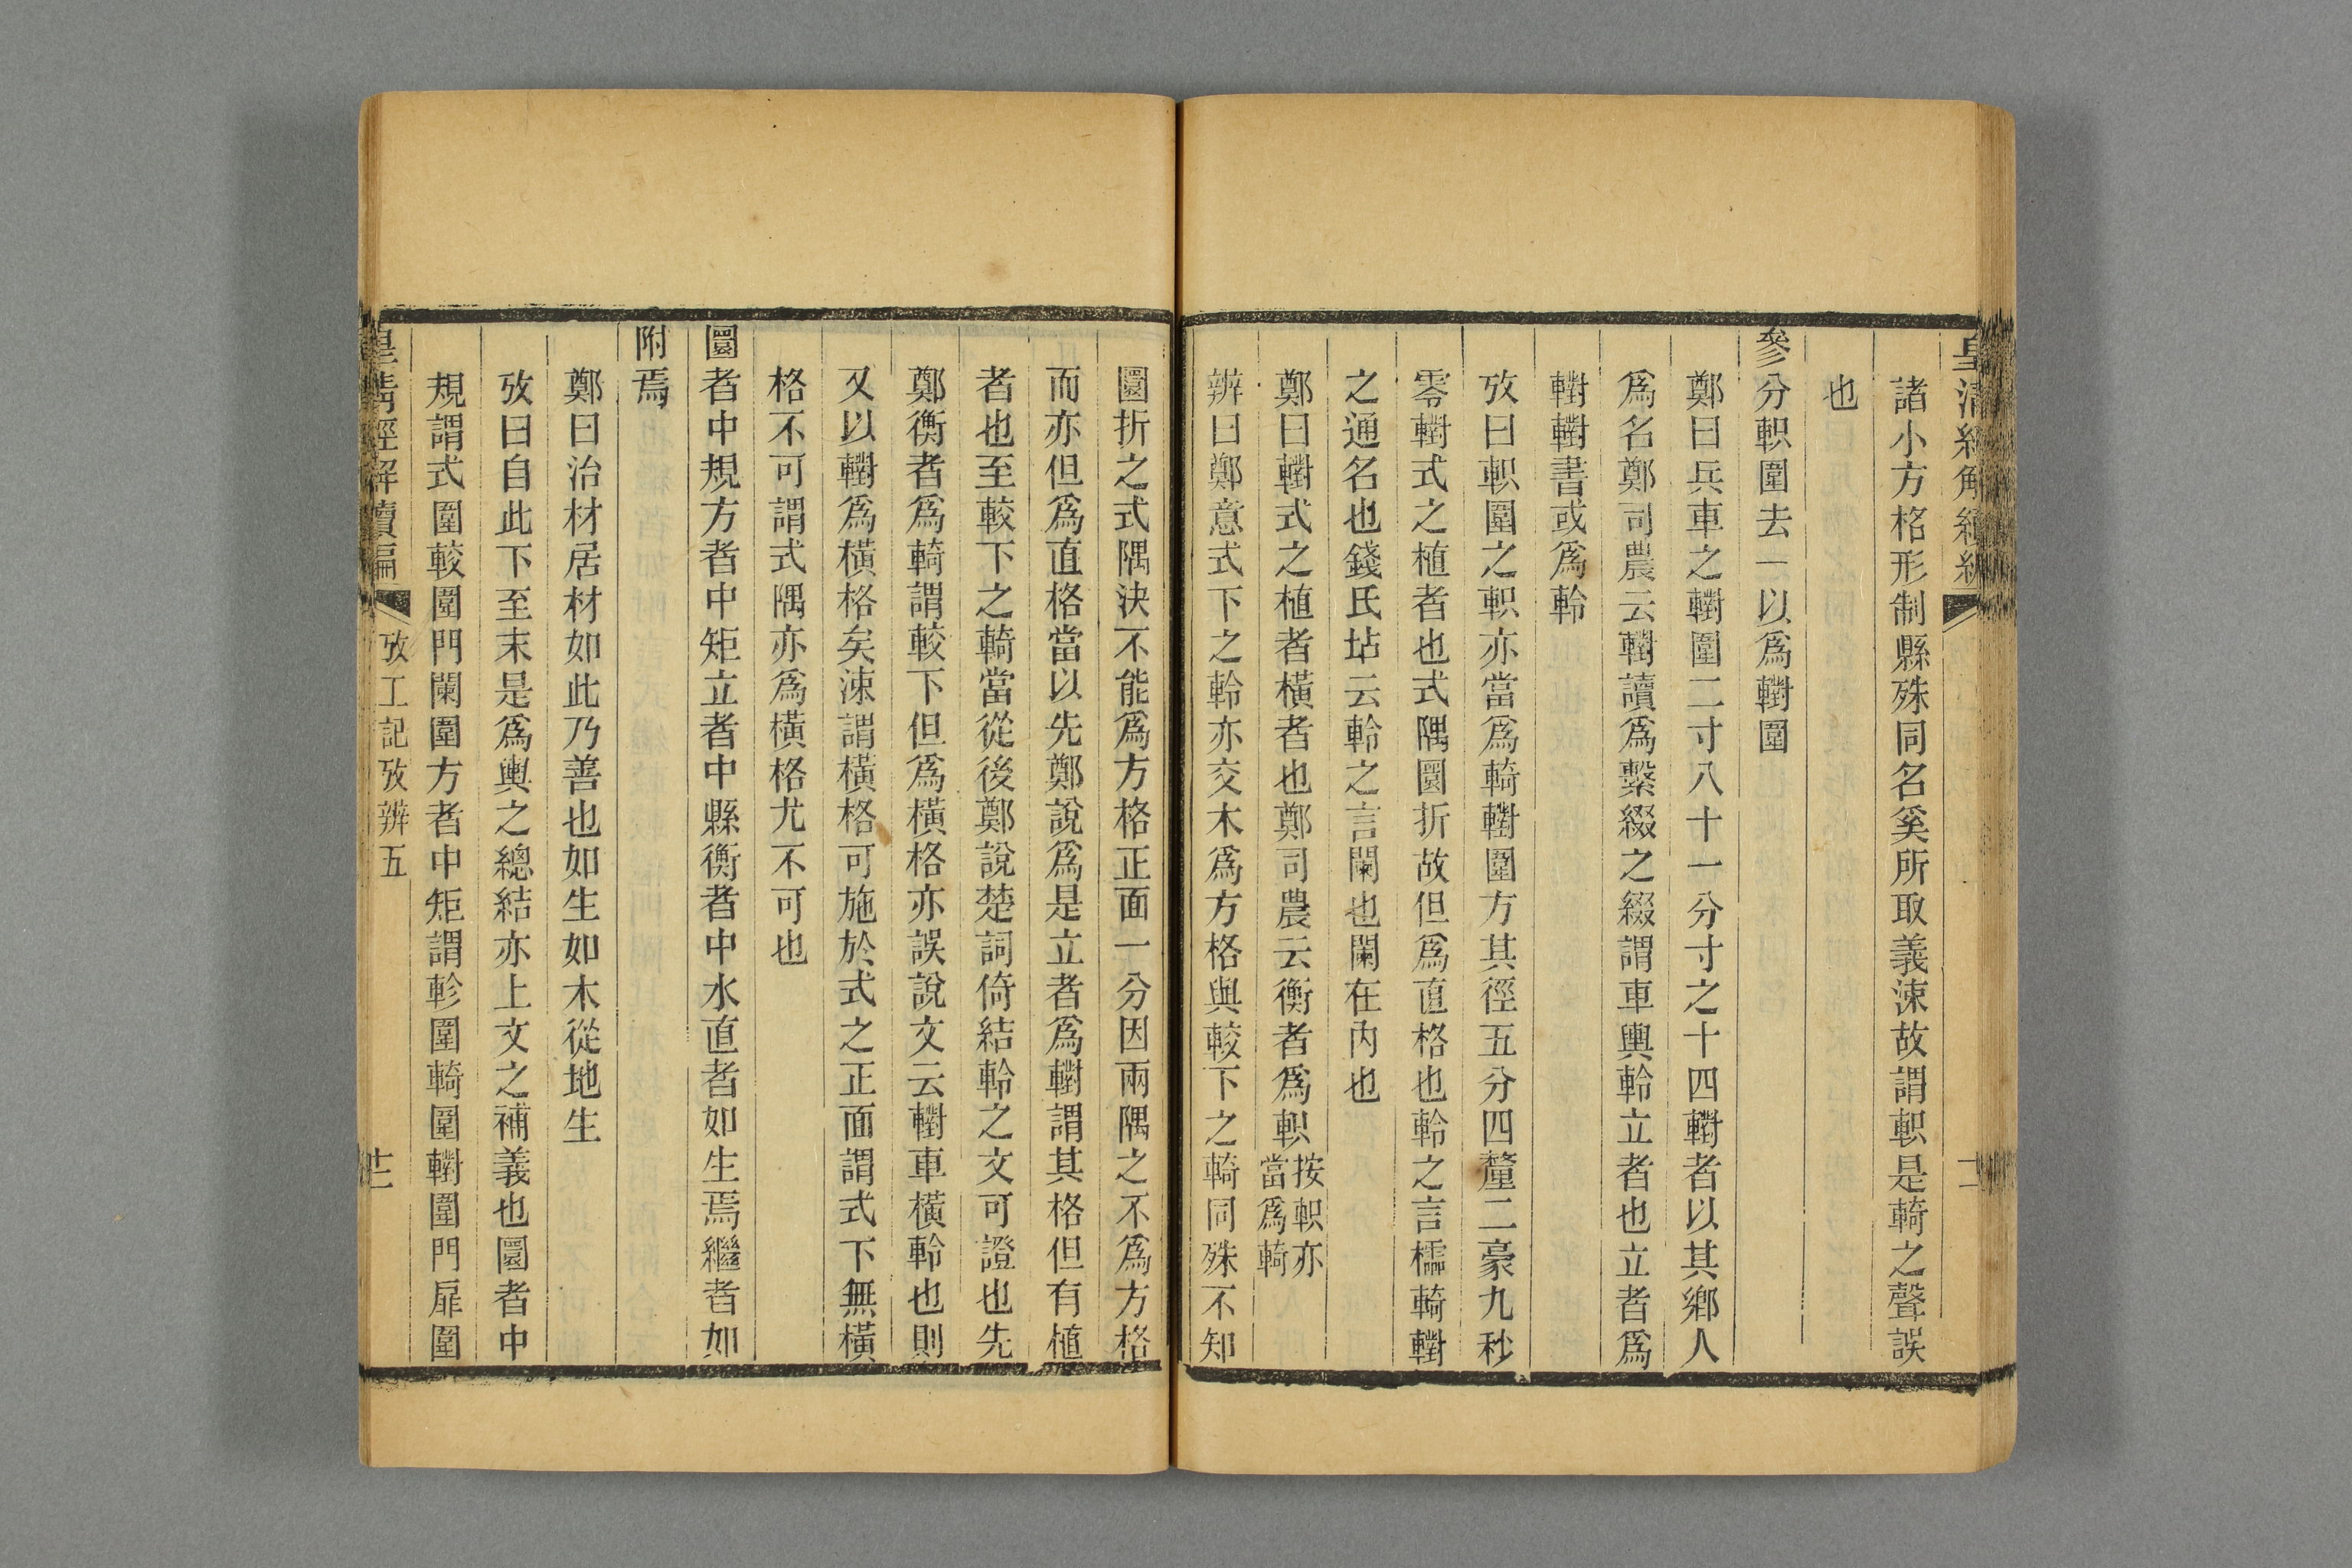 諸小方格形制縣殊同名奚所取義涑故謂軹是輢之聲誤
也
參分軹圍去一以爲轛圍
鄭曰兵車之轛圍二寸八十一分寸之十四轛者以其鄉人
爲名鄭司農云轛讀爲繫綴之綴謂車輿軨立者也立者爲
轛轛書或爲軨
攷曰軹圍之軹亦當爲輢轛圍方其徑五分四釐二豪九秒
零轛式之植者也式隅圜折故但爲直格也軨之言櫺輢轛
之通名也錢氏坫云軨之言闌也闌在內也
鄭曰轛式之植者橫者也鄭司農云衡者爲軹按軹亦當爲輢
辨曰鄭意式下之軨亦交木爲方格與較下之輢同殊不知
圜折之式隅決不能爲方格正面一分因兩隅之不爲方格
而亦但爲直格當以先鄭說爲是立者爲轛謂其格但有植
者也至較下之輢當從後鄭說楚詞倚結軨之文可證也先
鄭衡者爲輢謂較下但爲橫格亦誤說文云轛車橫軨也則
又以轛爲橫格矣涑謂橫格可施於式之正面謂式下無橫
格不可謂式隅亦爲橫格尤不可也
圜者中規方者中矩立者中縣衡者中水直者如生焉繼者如
附焉
鄭曰治材居材如此乃善也如生如木從地生
攷曰自此下至末是爲輿之總結亦上文之補義也圜者中
規謂式圍較圍門闌圍方者中矩謂軫圍輢圍轛圍門扉圍
皇清經解續編 攷工記攷辨五